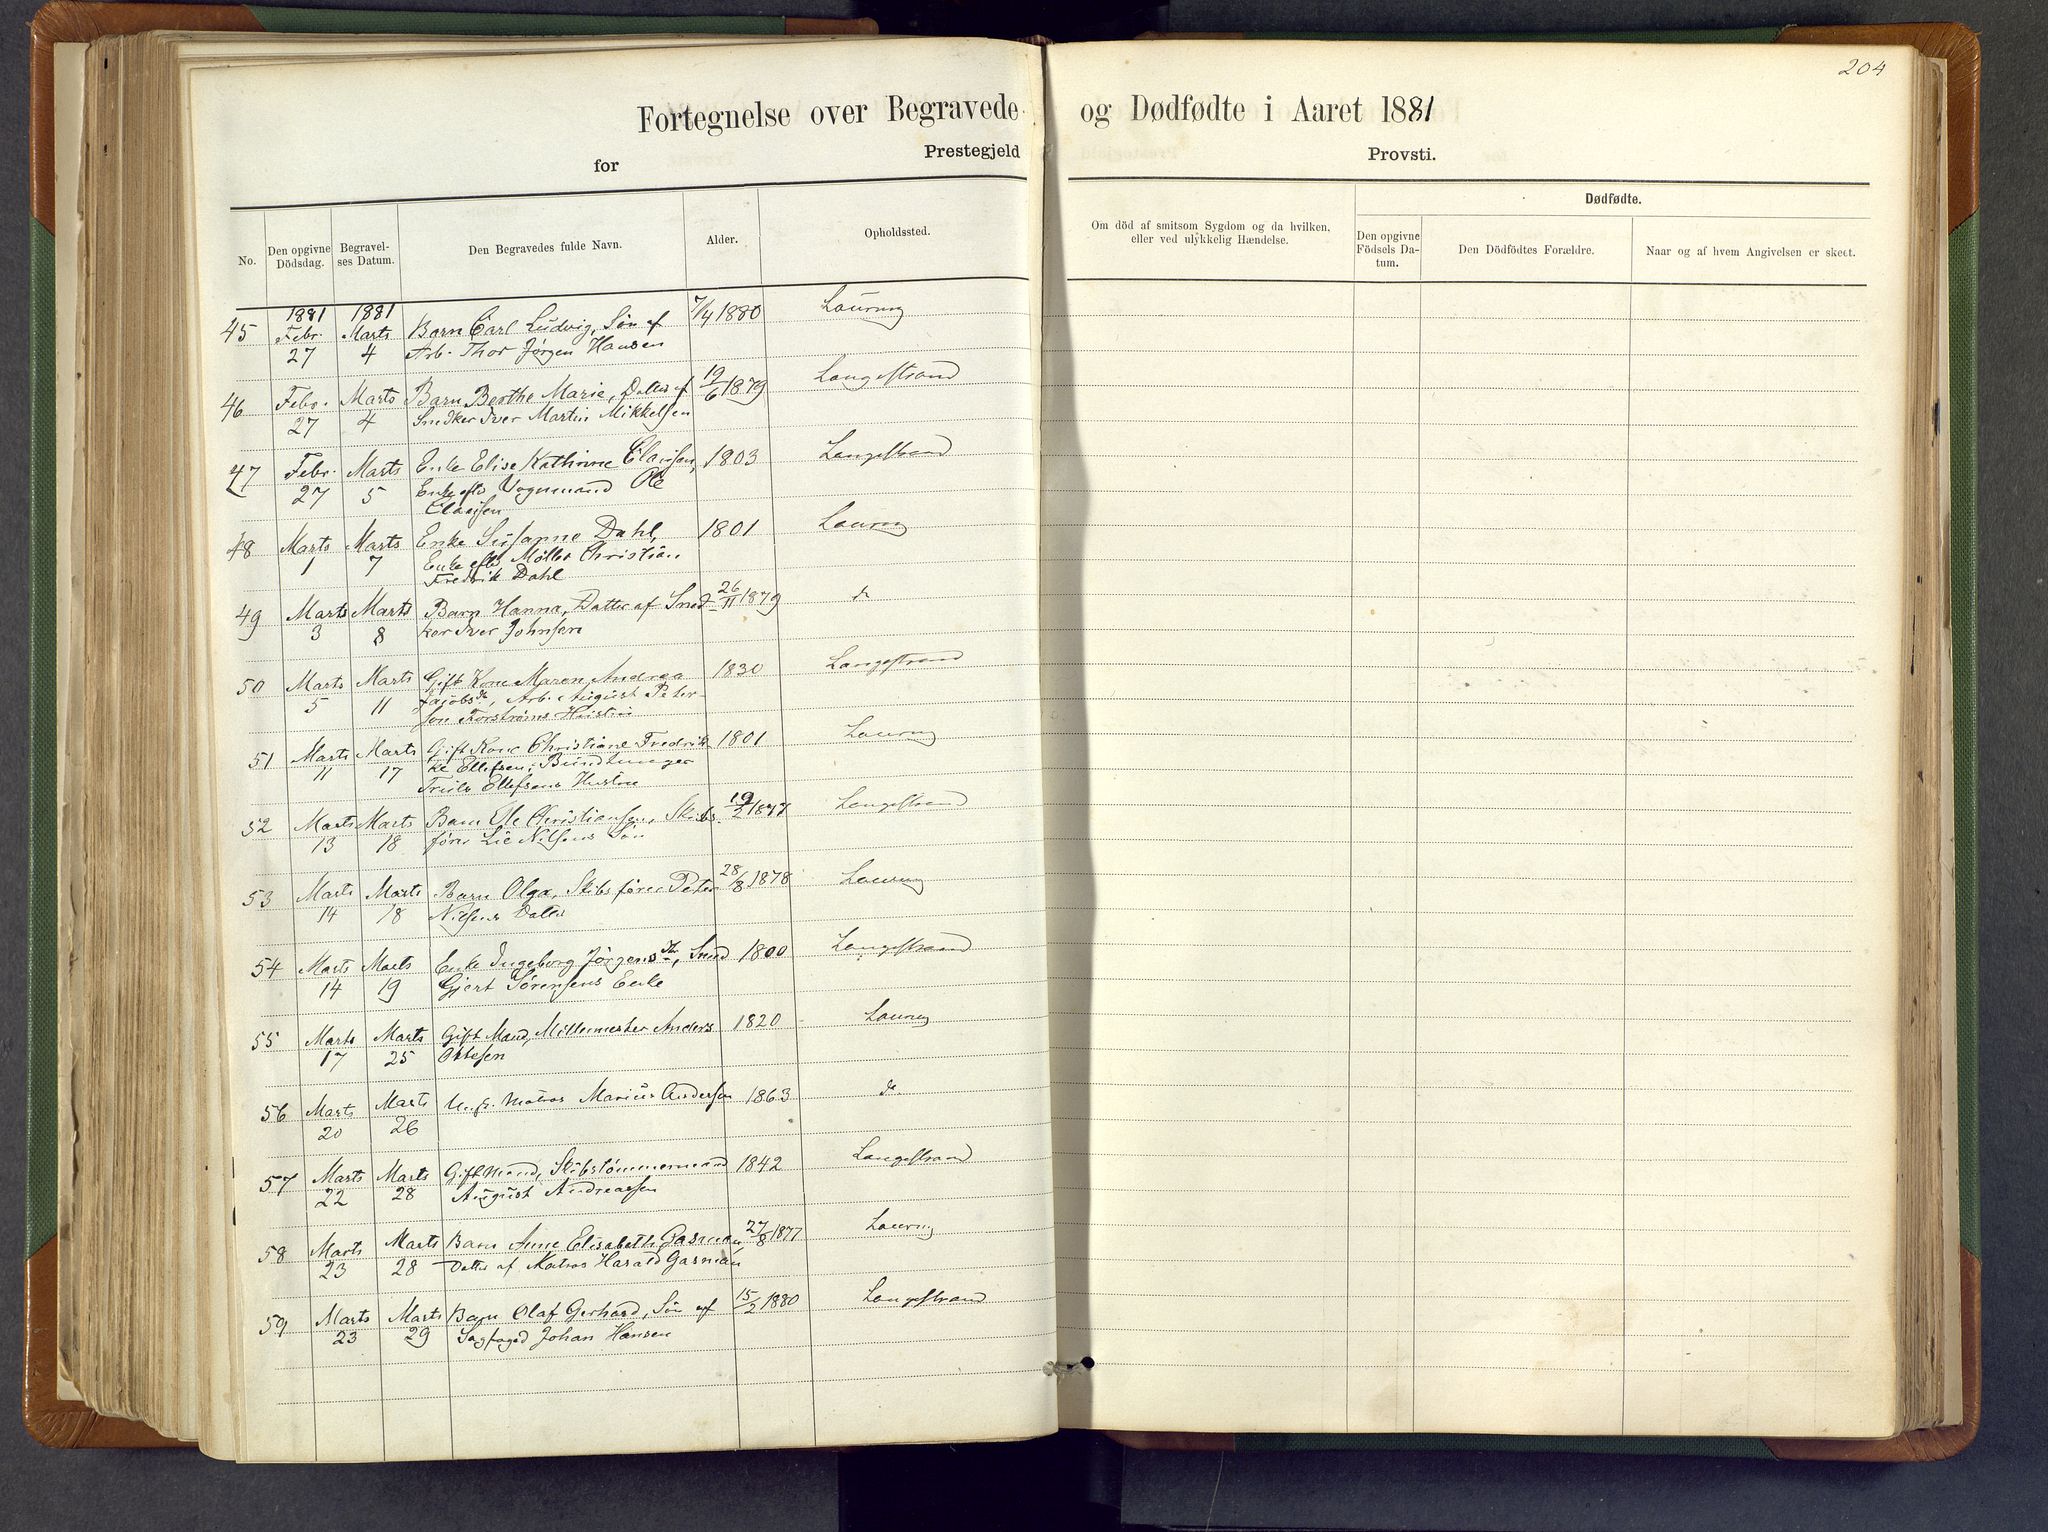 204
Fortegnelse over Begravede og Dødfødte i Aaret 1881
for Prestegjeld Provsti.
No. Den opgivne Dödsdag. Begravelses Datum. Den Begravedes fulde Navn. Alder. Opholdssted.
Om död af smitsom Sygdom og da hvilken, eller ved ulykkelig Hændelse.
Dødfødte.
Den opgivne Födsels Datum. Den Dödfödtes Forældre. Naar og af hvem Angivelsen er skeet.
1881 1881
45 Febr. Marts Barn Carl Ludvig, Søn af 7/4 1880 Laurvig
27 4 Arb. Thor Jørgen Hansen
46 Febr. Marts Barn Berthe Marie, Datter af 19/6 1879 Langestrand
27 4 Snedker Iver Martin Mikkelsen
47 Febr. Marts Enke Elise Kathrine Clausen, 1803 Langestrand
27 5 Enke efter Vognmand Ole
Clausen
48 Marts Marts Enke Susanne Dahl, 1801 Laurvig
1 7 Enke efter Møller Christian
Fredrik Dahl
49 Marts Marts Barn Hanna, Datter af Sned- 26/11 1879 do
3 8 ker Iver Johnsen
50 Marts Marts Gift Kone Maren Andrea 1830 Langestrand
5 11 Jacobsdr, Arb. August Peter-
sen Forstrøms Hustru
51 Marts Marts Gift Kone Christiane Fredrik- 1801 Laurvig
11 17 ke Ellefsen,
Truls Ellefsens Hustru
52 Marts Marts Barn Ole Christiansen, Skibs- 19/2 1877 Langestrand
13 18 fører Lie Nilsens Søn
53 Marts Marts Barn Olga, Skibsfører Peter 28/8 1878 Laurvig
14 18 Nilsens Datter
54 Marts Marts Enke Ingeborg Jørgensdr, Smed 1800 Langestrand
14 19 Gjert Sørensens Enke
55 Marts Marts Gift Mand, Møllemester Anders 1820 Laurvig
17 25 Ottesen
56 Marts Marts Ung. Matros Marius Andersen 1863 do
20 26
57 Marts Marts Gift Mand, Skibstømmermand 1842 Langestrand
22 28 August Andreasen
58 Marts Marts Barn Anne Elisabeth Gasman, 27/8 1877 Laurvig
23 28 Datter af Matros Harald Gasman
59 Marts Marts Barn Olaf Gerhard, Søn af 15/2 1880 Langestrand
23 29 Sagfoged Johan Hansen